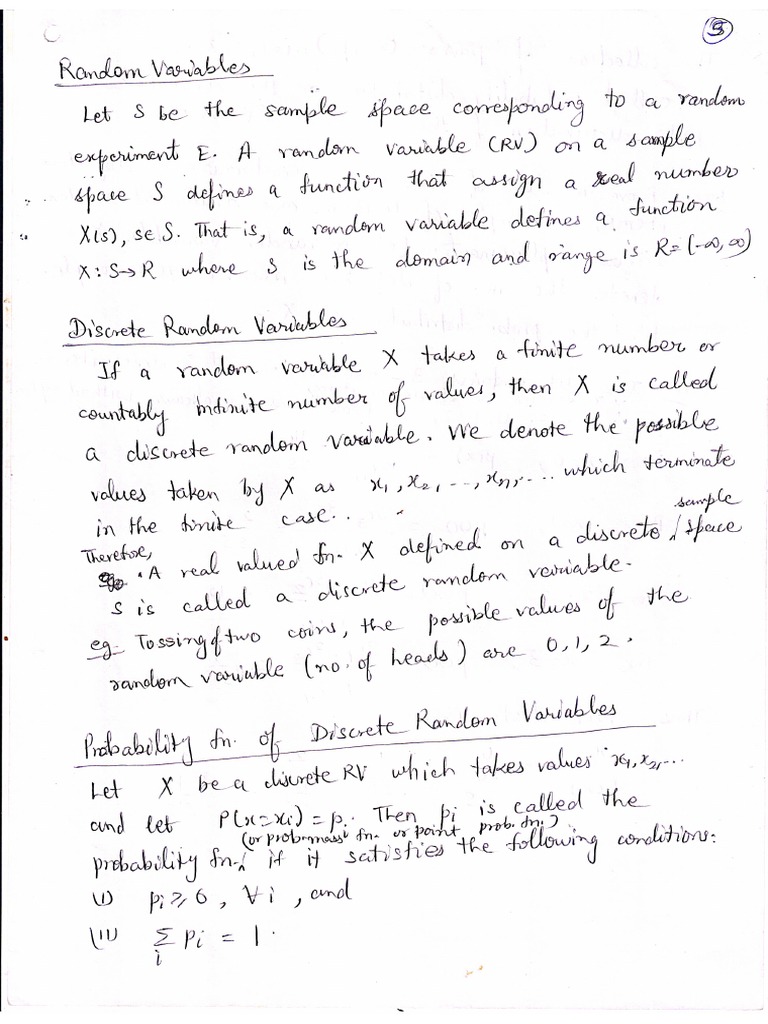 5
Random Variables
Let S be the sample space corresponding to a random
experiment E. A random variable (RV) on a sample
space S defines a function that assign a real number
X(s), s∈S. That is, a random variable defines a function
X: S→R where S is the domain and range is R=(-∞,∞)
Discrete Random Variables
If a random variable X takes a finite number or
countably infinite number of values, then X is called
a discrete random variable. We denote the possible
values taken by X as x₁, x₂, ..., xₙ, ... which terminate
in the finite case..
Therefore,
A real valued fn. X defined on a discrete sample space
S is called a discrete random variable.
eg:- Tossing of two coins, the possible values of the
random variable (no. of heads) are 0, 1, 2.
Probability fn. of Discrete Random Variables
Let X be a discrete RV which takes values x₁, x₂, ...
and let P(x=xi) = pi. Then pi is called the
(or prob. mass fn. or point prob. fn.)
probability fn. if it satisfies the following conditions:
(i) pi ≥ 0, ∀i, and
(ii) Σ pi = 1.
i